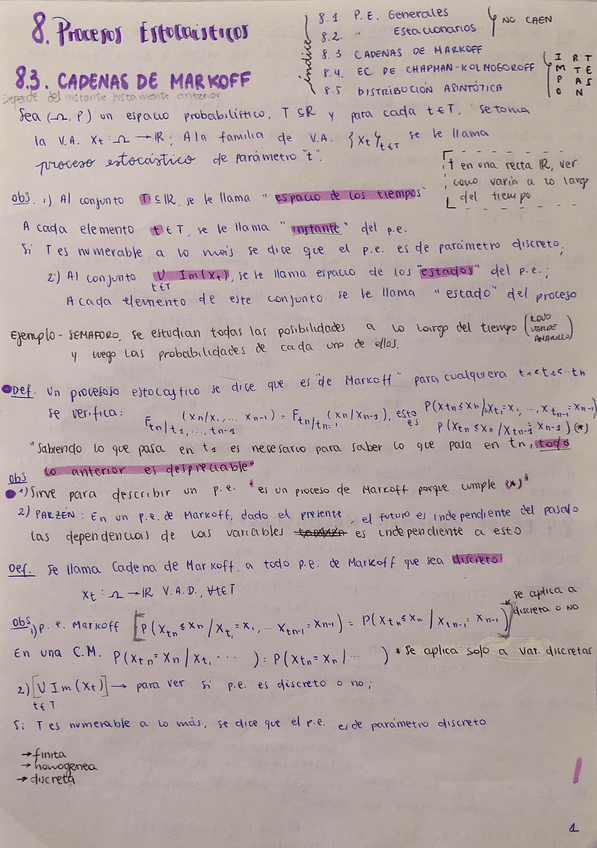 8. Procesos Estocásticos
índice
8.1 P.E. Generales
8.2. " Estacionarios
NO CAEN
8.3 CADENAS DE MARKOFF
8.4. EC DE CHAPMAN-KOLMOGOROFF
8.5 DISTRIBUCIÓN ASINTÓTICA
IMPORTANTES
8.3. CADENAS DE MARKOFF
Depende del instante justamente anterior
Sea (Ω, P) un espacio probabilístico, T ⊆ R y para cada t ∈ T, se toma
la V.A. Xt: Ω → R; A la familia de V.A. {Xt}t∈T se le llama
proceso estocástico de parámetro "t".
t en una recta R, ver
como varía a lo largo
del tiempo
obs. 1) Al conjunto T ⊆ R, se le llama "espacio de los tiempos"
A cada elemento t ∈ T, se le llama "instante" del p.e.
Si T es numerable a lo más se dice que el p.e. es de parámetro discreto;
2) Al conjunto U Im(Xt), se le llama espacio de los "estados" del p.e.;
t ∈ T
A cada elemento de este conjunto se le llama "estado" del proceso
Ejemplo - SEMAFORO, se estudian todas las posibilidades a lo largo del tiempo (ROJO VERDE AMARILLO)
y luego las probabilidades de cada uno de ellos.
Def. Un procesoso estocastico se dice que es "de Markoff" para cualquiera t1<t2<...tn
se verifica: Ftn/t1,...,tn-1 (xn/x1,... xn-1) = Ftn/tn-1 (xn/xn-1), esto es P(Xtn≤xn/Xt1=x1, ..., Xtn-1=xn-1)
P(Xtn≤xn/Xtn-1=xn-1) (*)
"Sabiendo lo que pasa en t1 es necesario para saber lo que pasa en tn, todo
lo anterior es despreciable"
obs
1) Sirve para describir un p.e. "es un proceso de Markoff porque cumple (*)"
2) PARZEN: En un p.e. de Markoff, dado el presente, el futuro es independiente del pasado
las dependencias de las variables también es independiente a esto
Def. Se llama Cadena de Markoff, a todo p.e. de Markoff que sea discreto
Xt: Ω → R V.A.D., ∀t∈T
se aplica a
discreta o no
obs 1) p.e. Markoff [P(Xtn ≤ xn / Xt1 = x1, ... Xtn-1 = xn-1) = P(Xtn ≤ xn / Xtn-1 = xn-1)]
En una C.M. P(Xtn = xn / Xt1 ... ) = P(Xtn = xn / ... ) * Se aplica solo a var. discretas
2) [U Im(Xt)] → para ver si p.e. es discreto o no;
t ∈ T
Si T es numerable a lo más, se dice que el p.e. es de parámetro discreto
→ finita
→ homogenea
→ discreta
1